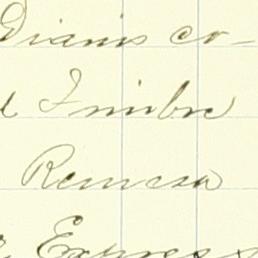 Diario co-
Timbre
Remesa
Express